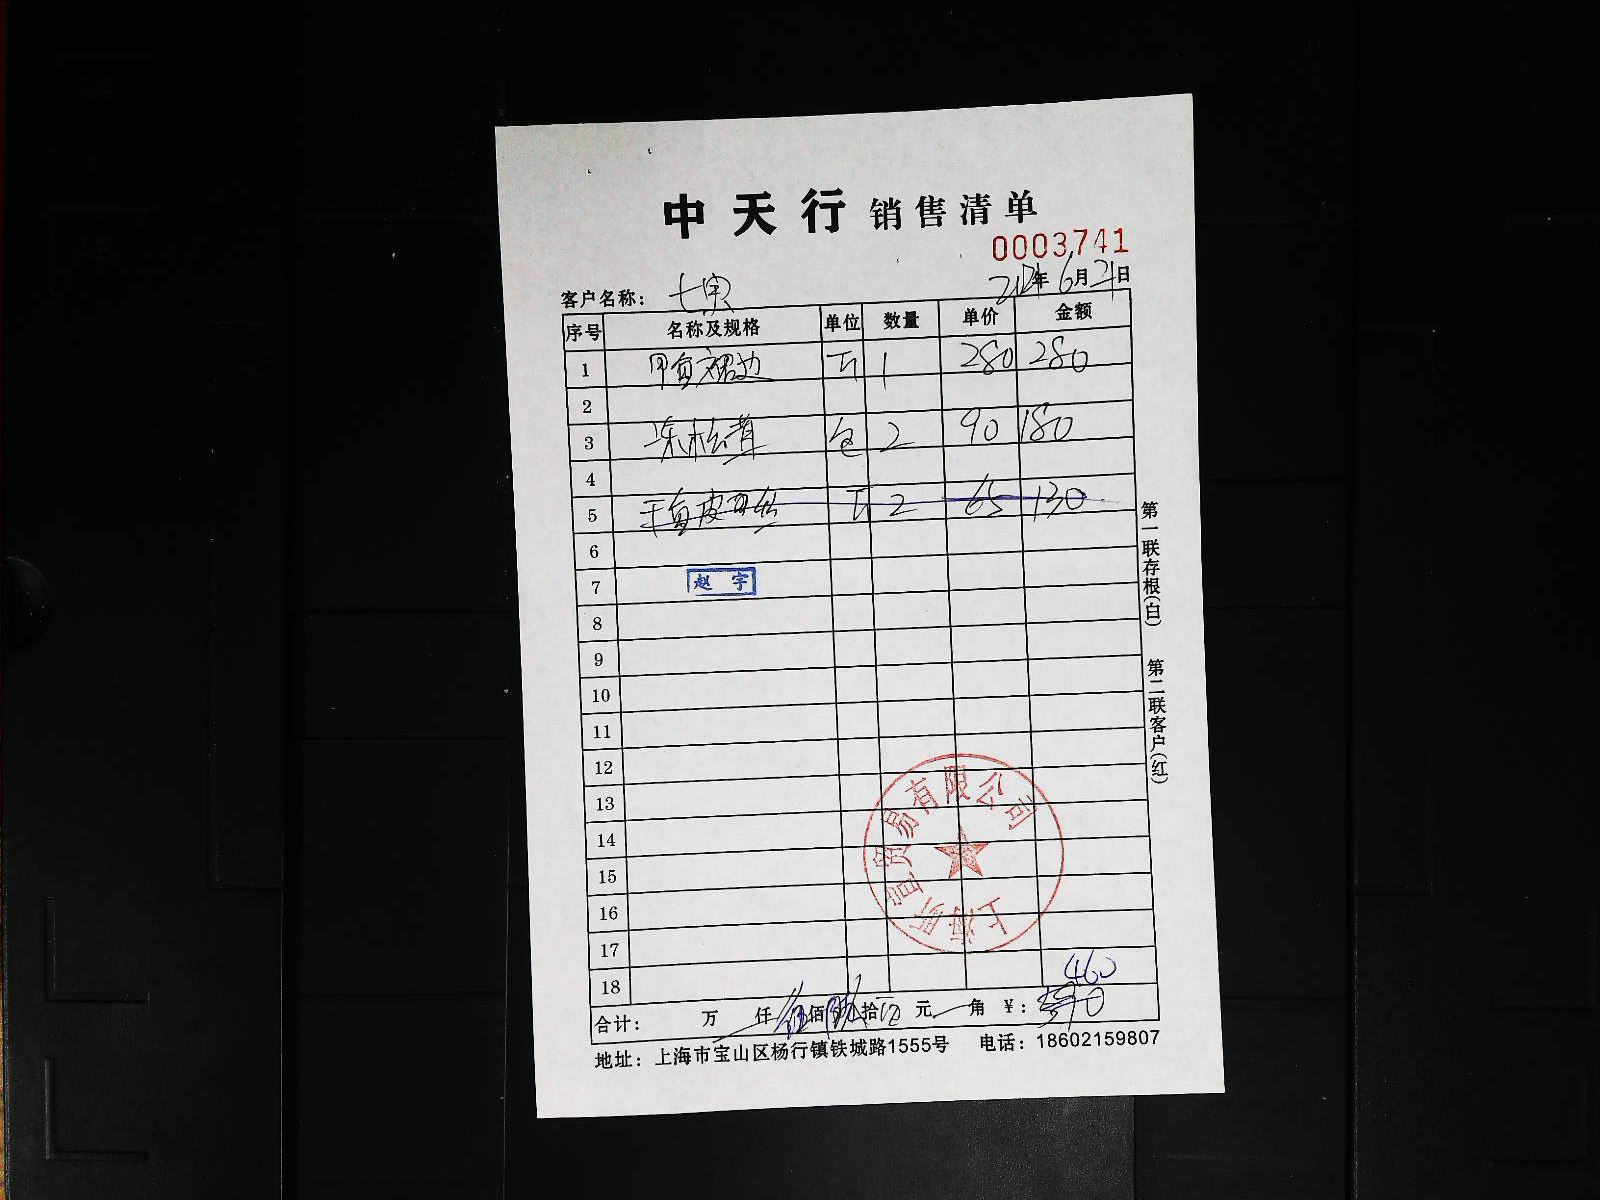 中天行 销售清单
0003741
客户名称： 七宝 年6月21日
序号 名称及规格 单位 数量 单价 金额
1 甲鱼裙边 斤 1 280 280
2
3 冻松茸 包 2 90 180
4
5 干鱼皮 斤 2 65 130
6
7 赵宇
8
9
10
11
12
13
14
15
16
17
18 460
合计： 万 仟 佰 拾 元 角 ¥：
地址：上海市宝山区杨行镇铁城路1555号 电话：18602159807
第一联存根(白) 第二联客户(红)
上海 贸易有限公司